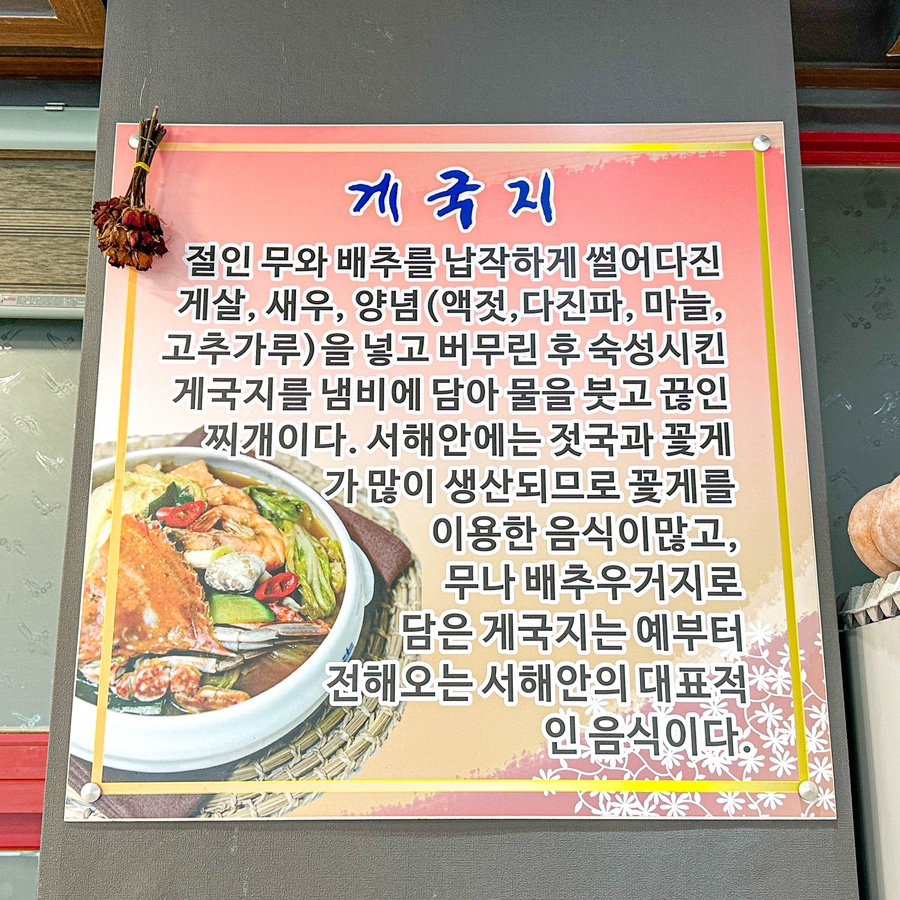 게국지
절인 무와 배추를 납작하게 썰어다진
게살, 새우, 양념(액젓,다진파, 마늘,
고추가루)을 넣고 버무린 후 숙성시킨
게국지를 냄비에 담아 물을 붓고 끊인
찌개이다. 서해안에는 젓국과 꽃게
가 많이 생산되므로 꽃게를
이용한 음식이많고,
무나 배추우거지로
담은 게국지는 예부터
전해오는 서해안의 대표적
인 음식이다.